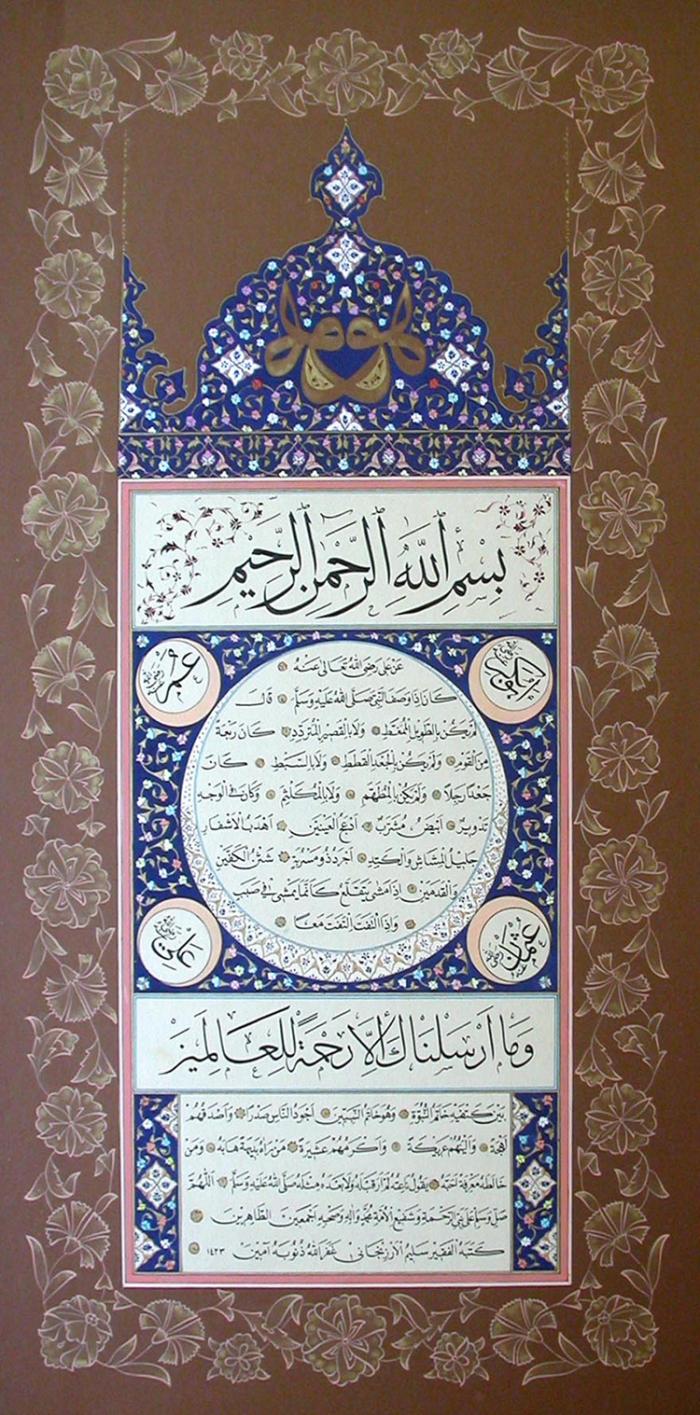 بِسْمِ ٱللّٰهِ ٱلرَّحْمٰنِ ٱلرَّحِيمِ
ابوبكر رضي الله عنه
عمر رضي الله عنه
عَنْ عَلِيٍّ رَضِيَ اللّٰهُ تَعَالٰى عَنْهُ
كَانَ اِذَا وَصَفَ النَّبِيَّ صَلَّى اللّٰهُ عَلَيْهِ وَسَلَّمَ قَالَ
لَمْ يَكُنْ بِالطَّوِيلِ الْمُمَّغِطِ وَلَا بِالْقَصِيرِ الْمُتَرَدِّدِ كَانَ رَبْعَةً
مِنَ الْقَوْمِ وَلَمْ يَكُنْ بِالْجَعْدِ الْقَطَطِ وَلَا بِالسَّبْطِ كَانَ
جَعْدًا رَجِلًا وَلَمْ يَكُنْ بِالْمُطَهَّمِ وَلَا بِالْمُكَلْثَمِ وَكَانَ فِي الْوَجْهِ
تَدْوِيرٌ اَبْيَضُ مُشْرَبٌ اَدْعَجُ الْعَيْنَيْنِ اَهْدَبُ الْاَشْفَارِ
جَلِيلُ الْمُشَاشِ وَالْكَتَدِ اَجْرَدُ ذُو مَسْرُبَةٍ شَثْنُ الْكَفَّيْنِ
وَالْقَدَمَيْنِ اِذَا مَشٰى يَتَقَلَّعُ كَاَنَّمَا يَمْشِي فِي صَبَبٍ
وَاِذَا الْتَفَتَ الْتَفَتَ مَعًا
عثمان رضي الله عنه
علي رضي الله عنه
وَمَا اَرْسَلْنَاكَ اِلَّا رَحْمَةً لِلْعَالَمِينَ
بَيْنَ كَتِفَيْهِ خَاتَمُ النُّبُوَّةِ وَهُوَ خَاتَمُ النَّبِيِّينَ اَجْوَدُ النَّاسِ صَدْرًا وَاَصْدَقُهُمْ
لَهْجَةً وَاَلْيَنُهُمْ عَرِيكَةً وَاَكْرَمُهُمْ عَشِيرَةً مَنْ رَاٰهُ بَدِيهَةً هَابَهُ وَمَنْ
خَالَطَهُ مَعْرِفَةً اَحَبَّهُ يَقُولُ نَاعِتُهُ لَمْ اَرَ قَبْلَهُ وَلَا بَعْدَهُ مِثْلَهُ صَلَّى اللّٰهُ عَلَيْهِ وَسَلَّمَ اَللّٰهُمَّ
صَلِّ وَسَلِّمْ عَلٰى نَبِيِّ الرَّحْمَةِ وَشَفِيعِ الْاُمَّةِ مُحَمَّدٍ وَاٰلِهِ وَصَحْبِهِ اَجْمَعِينَ الطَّاهِرِينَ
كَتَبَهُ الْفَقِيرُ سَلِيمُ الْاَرْزِنْجَانِي غَفَرَ اللّٰهُ ذُنُوبَهُ اٰمِينَ ١٤٢٣